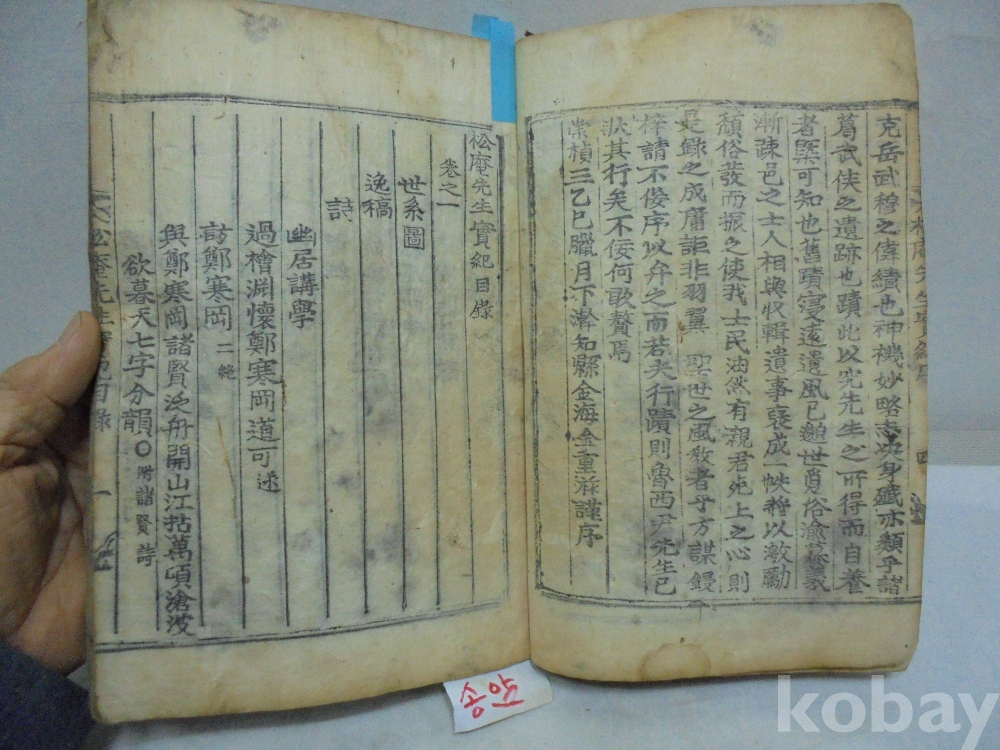 克岳武穆之偉績也神機妙略志決身殲亦類乎諸
葛武侯之遺跡也蹟此以究先生之所得而自養
者槩可知也舊蹟寖遠遺風已邈世貿俗渝慕義
漸疎邑之士人相與收輯遺事裒成一帙將以激勵
頹俗發而振之使我士民油然有親君死上之心則
是錄之成庸詎非羽翼 聖世之風敎者乎方謀鋟
梓請不佞序以弁之而若夫行蹟則魯西尹先生已
狀其行矣不佞何敢贅焉
崇禎三乙巳臘月下澣知縣金海金重 謹序
松庵先生實紀序 四
松庵先生實紀目錄
卷之一
世系圖
逸稿
詩
幽居講學
過檜淵懷鄭寒岡道可 述
訪鄭寒岡 二絶
與鄭寒岡諸賢泛舟開山江拈萬頃滄波
欲暮天七字分韻○附諸賢詩
松庵先生實紀目錄 一
송암
kobay